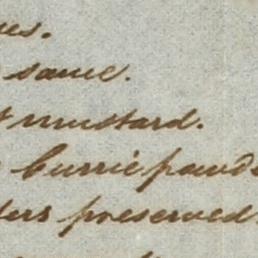 sauce.
mustard.
Currie powde
preserved